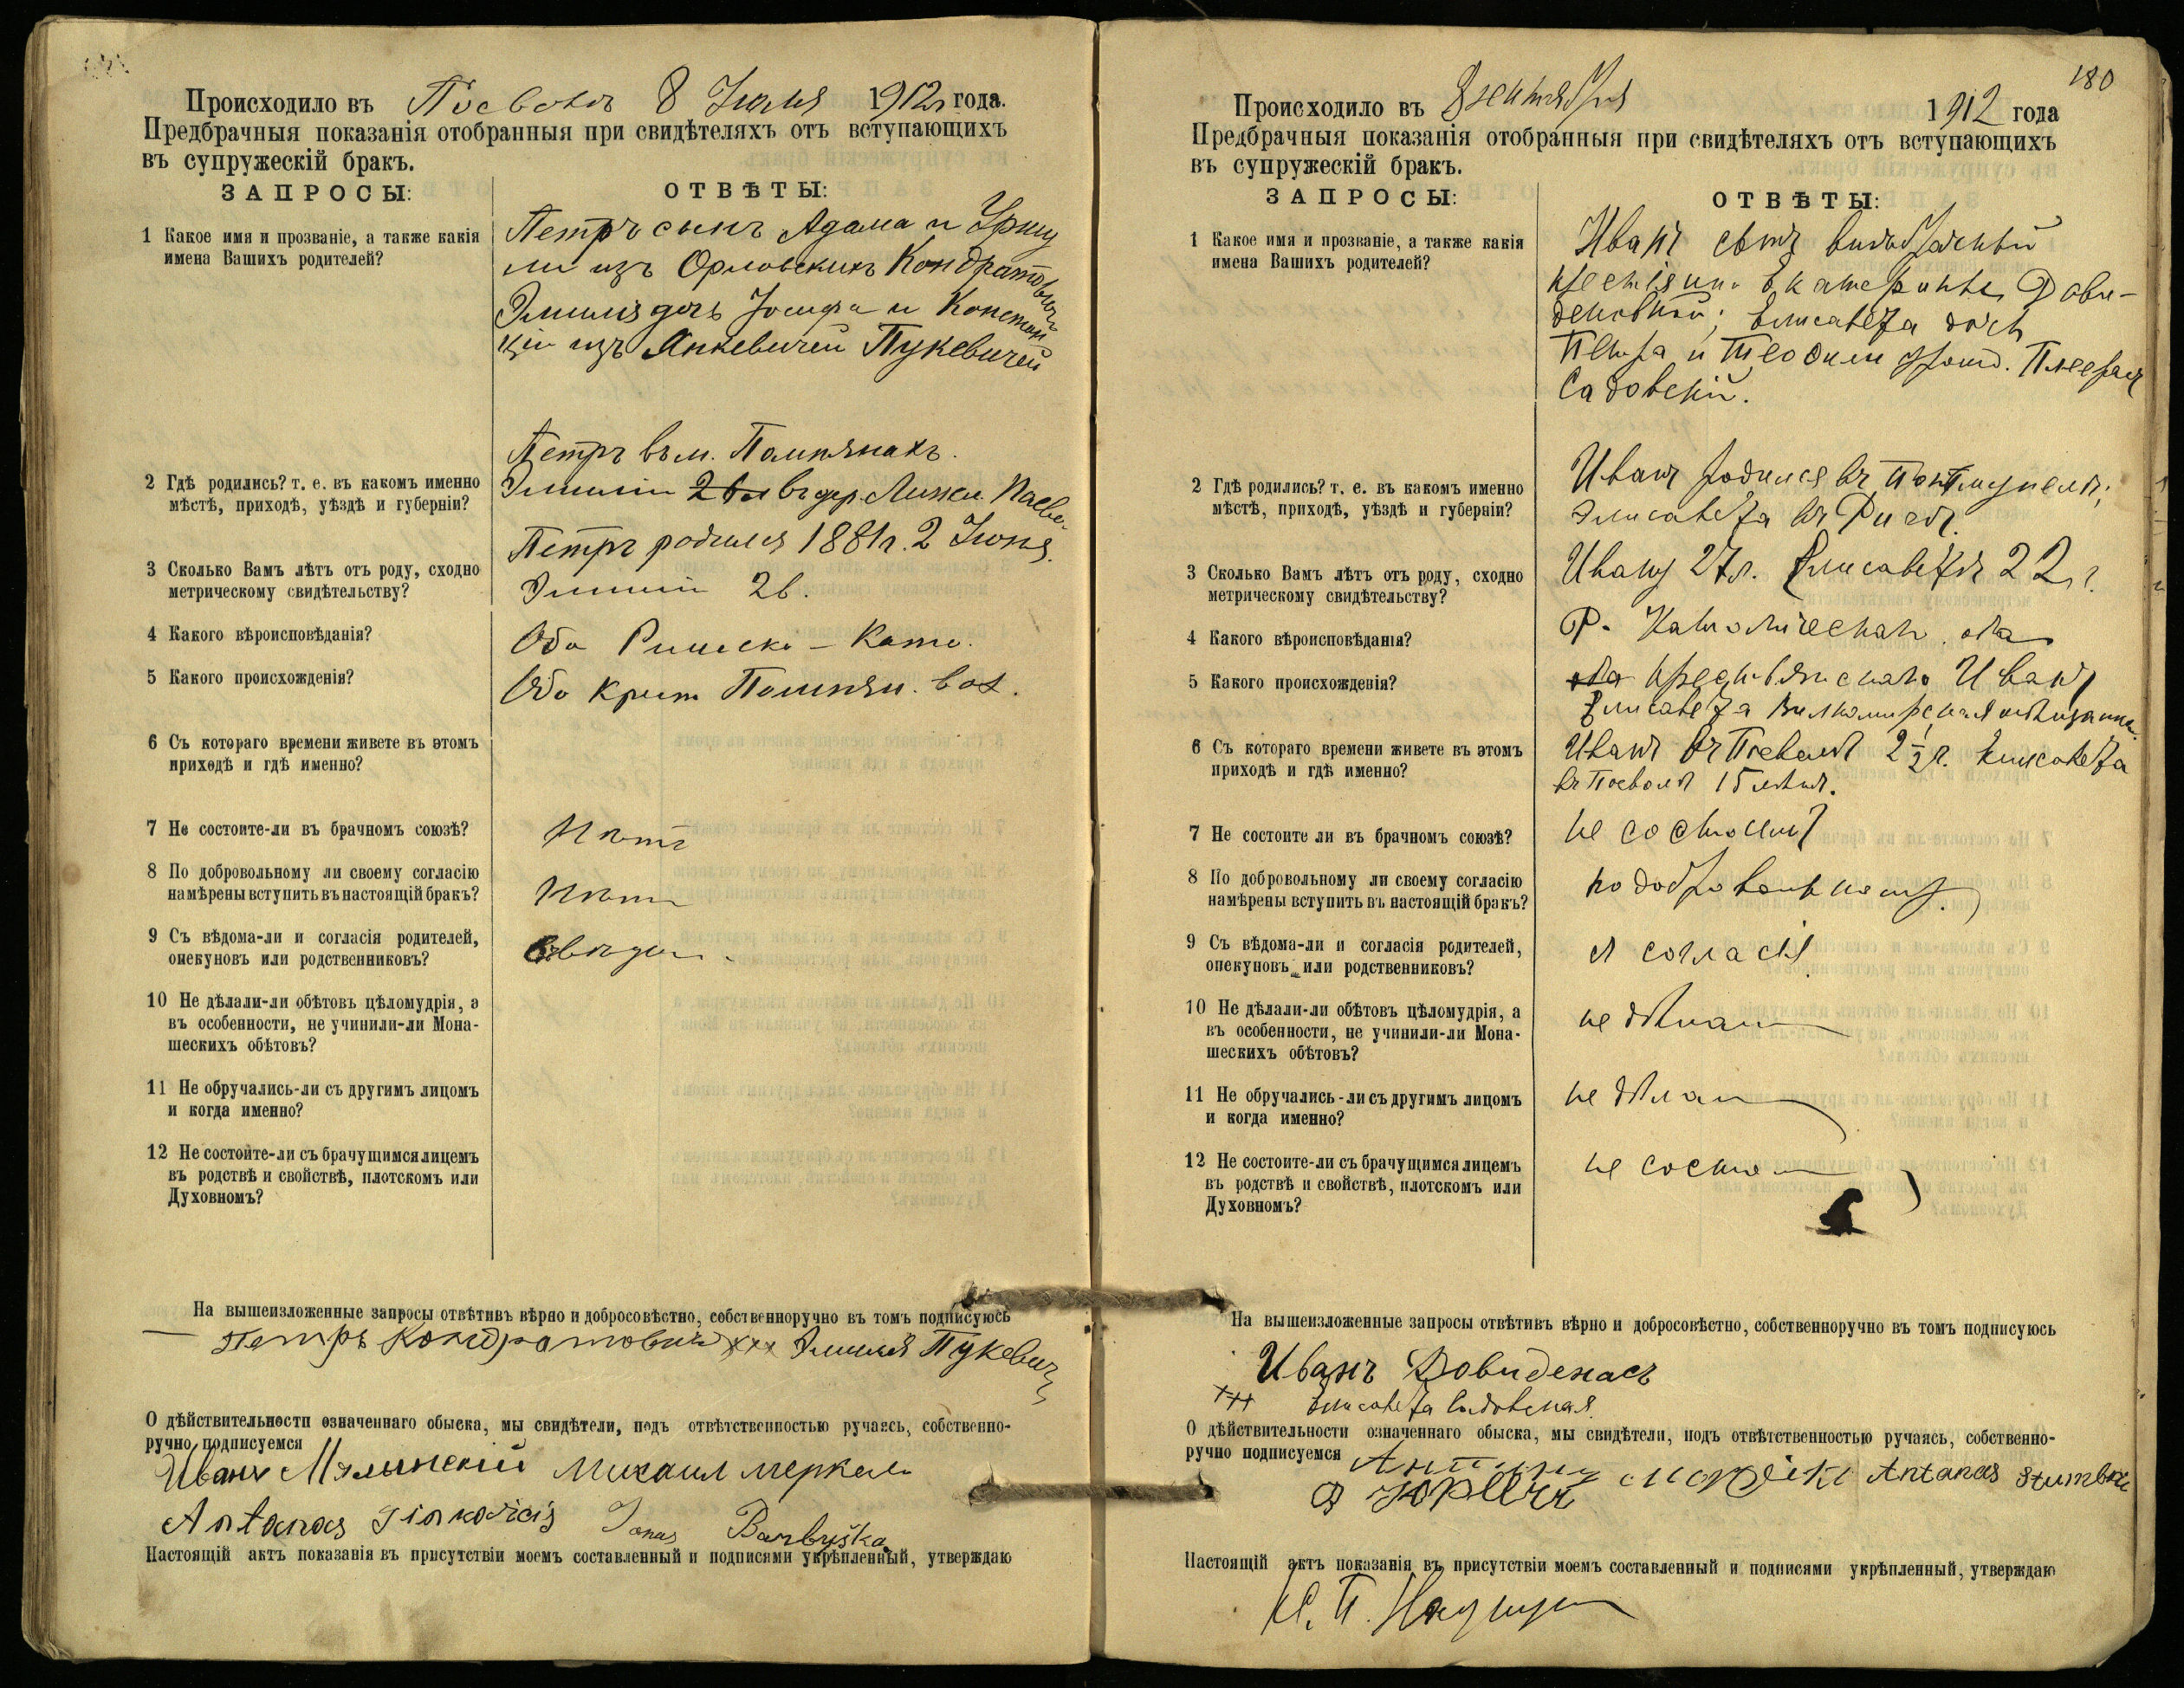 Происходило въ Посволѣ 8 Іюля 1912 г года.
Предбрачныя показанія отобранныя при свидѣтеляхъ отъ вступающихъ
въ супружескій бракъ.
ЗАПРОСЫ:
ОТВѢТЫ:
1 Какое имя и прозваніе, а также какія
имена Вашихъ родителей?
Петръ сынъ Адама и Уршу
ли изъ Орловскихъ Кондратовичъ
Эмилія дочь Іосифа и Констан
ціи изъ Янкевичей Пукевичей
2 Гдѣ родились? т. е. въ какомъ именно
мѣстѣ, приходѣ, уѣздѣ и губерніи?
Петръ въ м. Помпянахъ.
Эмиліи въ дер.
3 Сколько Вамъ лѣтъ отъ роду, сходно
метрическому свидѣтельству?
Петръ родился 1881 г. 2 Іюня.
Эмиліи 26.
4 Какого вѣроисповѣданія?
Оба Римско-Като.
5 Какого происхожденія?
Оба Крест Помпян. вол.
6 Съ котораго времени живете въ этомъ
приходѣ и гдѣ именно?
7 Не состоите-ли въ брачномъ союзѣ?
Нѣтъ
8 По добровольному ли своему согласію
намѣрены вступить въ настоящій бракъ?
Нѣтъ
9 Съ вѣдома-ли и согласія родителей,
опекуновъ или родственниковъ?
10 Не дѣлали-ли обѣтовъ цѣломудрія, а
въ особенности, не учинили-ли Мона-
шескихъ обѣтовъ?
11 Не обручались-ли съ другимъ лицомъ
и когда именно?
12 Не состоите-ли съ брачущимся лицемъ
въ родствѣ и свойствѣ, плотскомъ или
Духовномъ?
На вышеизложенные запросы отвѣтивъ вѣрно и добросовѣстно, собственноручно въ томъ подписуюсь
Петръ Кондратовичъ xxx Эмилія Пукевичъ
О дѣйствительности означеннаго обыска, мы свидѣтели, подъ отвѣтственностью ручаясь, собственно-
ручно подписуемся
Иванъ Михаил Меркель
Antanas Jonas Barbyška
Настоящій актъ показанія въ присутствіи моемъ составленный и подписями укрѣпленный, утверждаю
180
Происходило въ 8 сентября 1912 года
Предбрачныя показанія отобранныя при свидѣтеляхъ отъ вступающихъ
въ супружескій бракъ.
ЗАПРОСЫ:
ОТВѢТЫ:
1 Какое имя и прозваніе, а также какія
имена Вашихъ родителей?
Иванъ сынъ внѣбрачный
крестьянки Екатерины Дови-
деновной; Елисавета дочь
Петра и Теофили урожд.
Садовскій.
2 Гдѣ родились? т. е. въ какомъ именно
мѣстѣ, приходѣ, уѣздѣ и губерніи?
Иванъ родился въ
Элисавета въ Ригѣ.
3 Сколько Вамъ лѣтъ отъ роду, сходно
метрическому свидѣтельству?
Иванъ 27 л. Елисаветѣ 22 г.
4 Какого вѣроисповѣданія?
Р. Католическаго оба
5 Какого происхожденія?
оба крестьянскаго Иванъ
Елисавета Вилкомирская мѣщанка.
6 Съ котораго времени живете въ этомъ
приходѣ и гдѣ именно?
Иванъ въ Посволѣ 2 1/2 г. Елисавета
въ Посволѣ 15 лѣтъ.
7 Не состоите ли въ брачномъ союзѣ?
не состоимъ
8 По добровольному ли своему согласію
намѣрены вступить въ настоящій бракъ?
по добровольному.
9 Съ вѣдома-ли и согласія родителей,
опекуновъ или родственниковъ?
согласія
10 Не дѣлали-ли обѣтовъ цѣломудрія, а
въ особенности, не учинили-ли Мона-
шескихъ обѣтовъ?
не дѣлали
11 Не обручались-ли съ другимъ лицомъ
и когда именно?
не дѣлали
12 Не состоите-ли съ брачущимся лицемъ
въ родствѣ и свойствѣ, плотскомъ или
Духовномъ?
не состоим
На вышеизложенные запросы отвѣтивъ вѣрно и добросовѣстно, собственноручно въ томъ подписуюсь
Иванъ Довиденасъ
+++ Элисавета Садовская.
О дѣйствительности означеннаго обыска, мы свидѣтели, подъ отвѣтственностью ручаясь, собственно-
ручно подписуемся
Antanas
Настоящій актъ показанія въ присутствіи моемъ составленный и подписями укрѣпленный, утверждаю